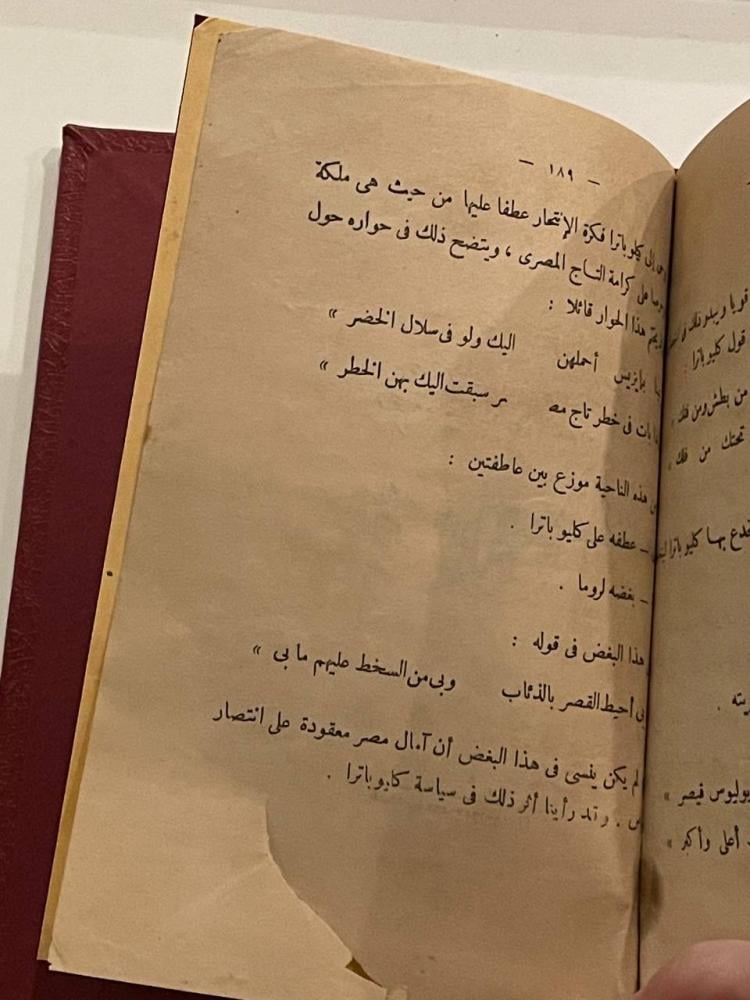 — ١٨٩ —
إلى كليوباترا فكرة الإنتحار عطفا عليها من حيث هى ملكة
على كرامة التاج المصرى ، ويتضح ذلك فى حواره حول
هذا الحوار قائلا :
بإيزيس أحملهن اليك ولو فى سلال الخضر »
بات فى خطر تاج مصـ ـر سبقت اليك بهن الخطر »
هذه الناحية موزع بين عاطفتين :
ــ عطفه على كليوباترا .
ــ بغضه لروما .
هذا البغض فى قوله :
أحيط القصر بالذئاب وبى من السخط عليهم ما بى »
لم يكن ينسى فى هذا البغض أن آمال مصر معقودة على انتصار
. وقد رأينا أثر ذلك فى سياسة كليوباترا .
قول كليوباترا :
من بطش ومن فلك
تحتك من فلك »
بها كليوباترا
يوليوس قيصر »
أعلى وأكبر »